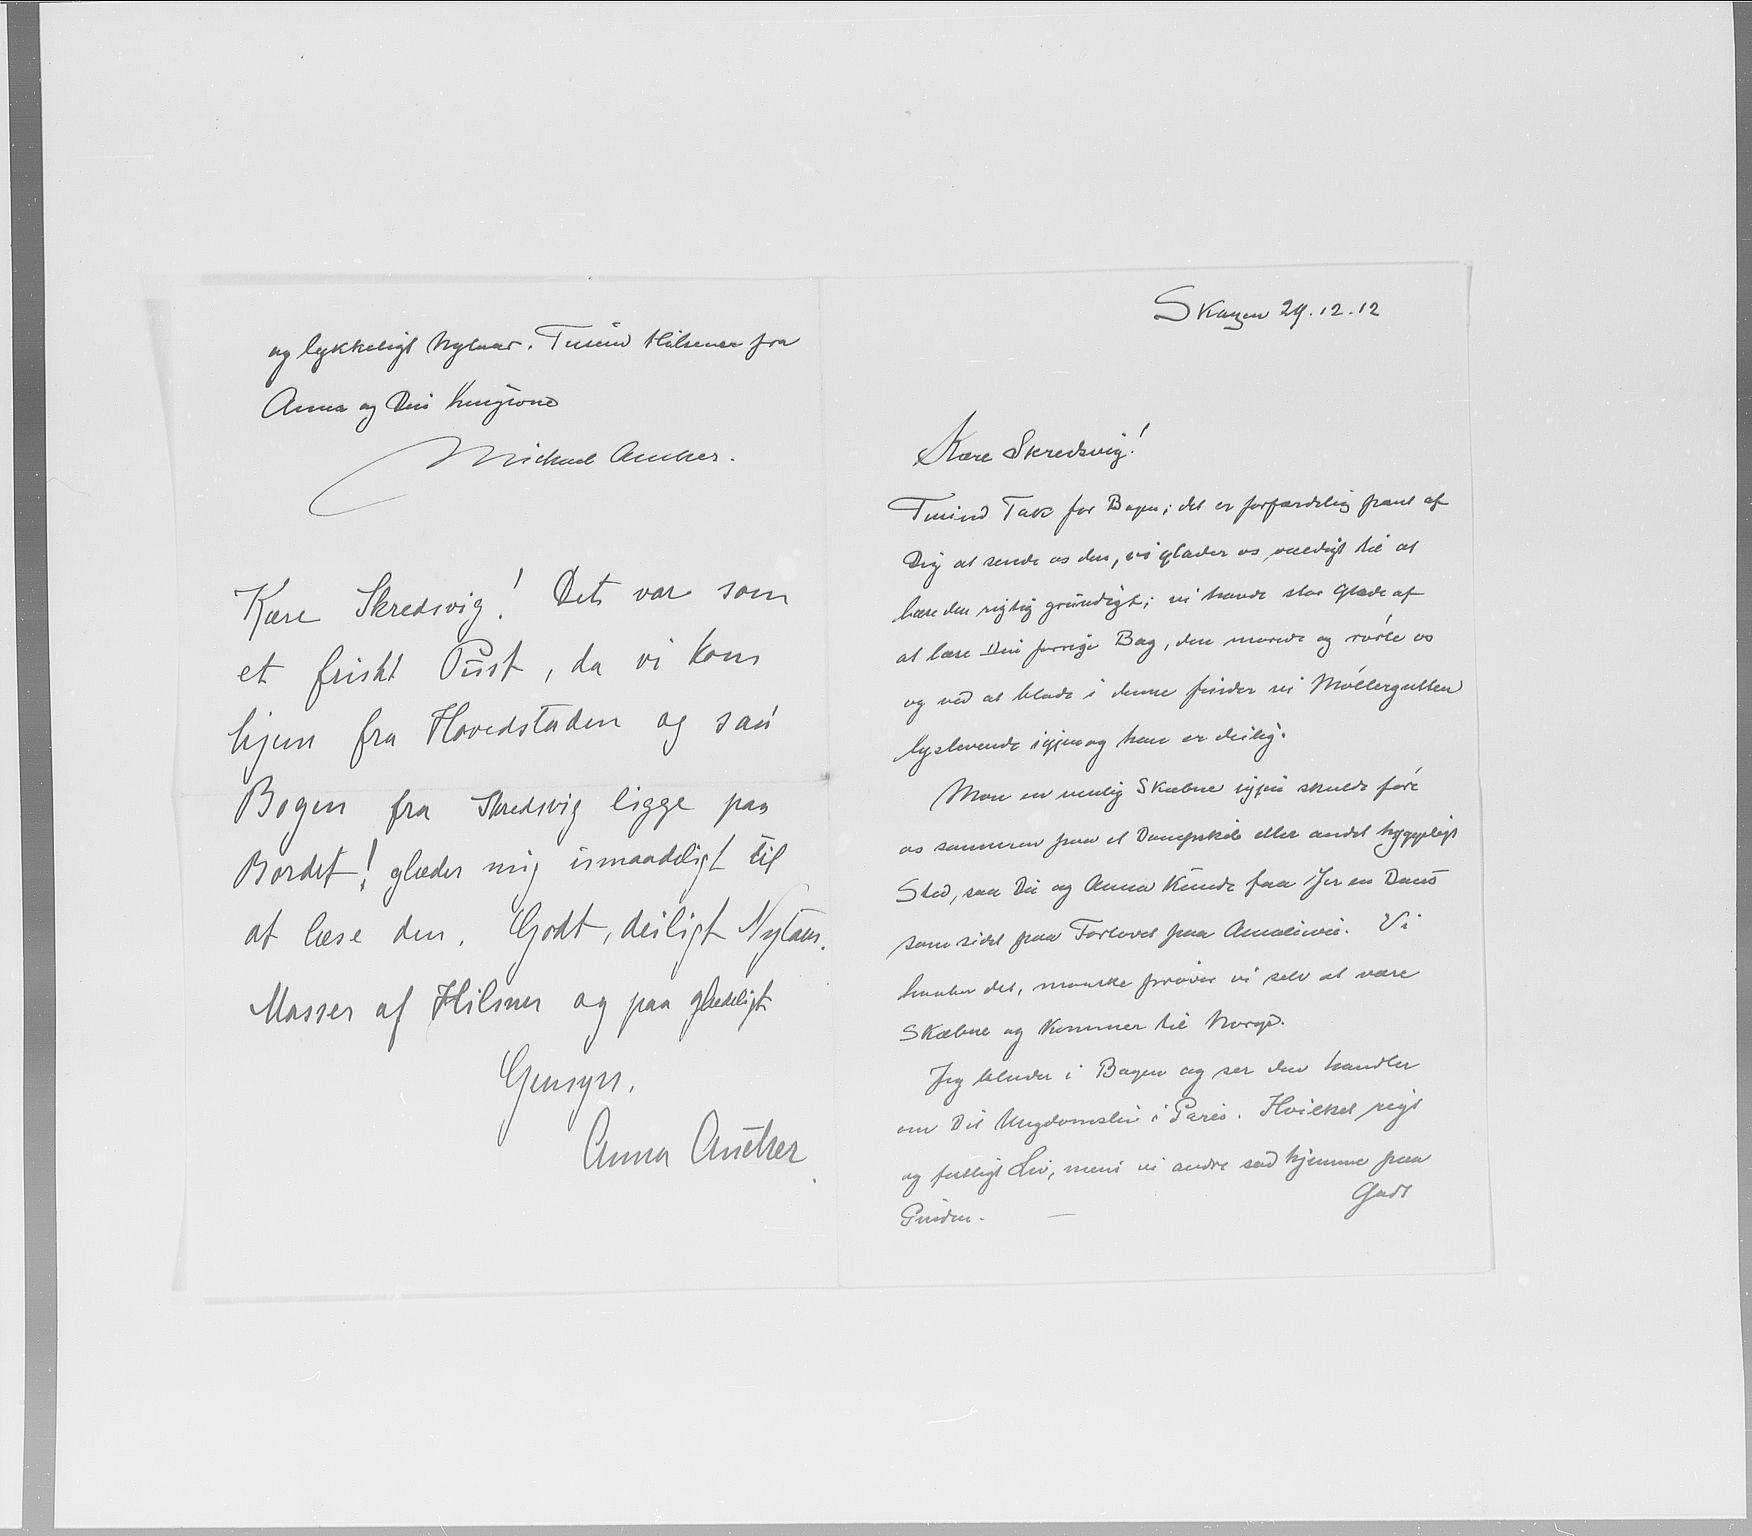 Skagen 29.12.12
Kære Skredsvig!
Tusind Tak for Bogen; det er forfærdelig pænt af
Dig at sende os den, vi glæder os vældigt til at
læse den rigtig grundigt; vi havde stor Glæde af
at læse Din forrige Bog, den morede og rørte os
og ved at blade i denne finder vi Møllergutten
lyslevende igjen og han er deilig.
Mon en venlig Skæbne igjen skulde føre
os sammen paa et Dampskib eller andet hyggeligt
Sted, saa Du og Anna kunde faa Jer en Dans
som sidst paa Torvet paa
Vi
haaber det, maaske prøver vi selv at være
Skæbne og kommer til Norge.
Jeg blader i Bogen og ser den handler
om Dit Ungdomsliv i Paris. Hvilket rigt
og festligt Liv, mens vi andre sad hjemme paa
Pinden. —
Godt
og lykkeligt Nytaar. Tusind Hilsener fra
Anna og Din hengivne
Michael Ancher.
Kære Skredsvig! Det var som
et friskt Pust, da vi kom
hjem fra Hovedstaden og saa
Bogen fra Skredsvig ligge paa
Bordet! glæder mig umaadeligt til
at læse den. Godt, deiligt Nytaar.
Masser af Hilsner og paa glædeligt
Gensyn.
Anna Ancher.